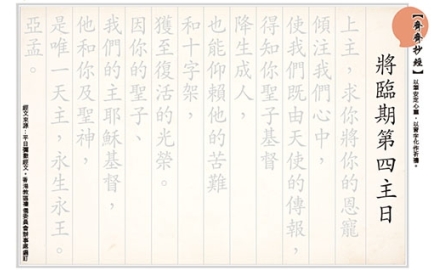 抄經】
安定心靈，以習字化作祈禱。
將臨期第四主日
上主，求你將你的恩寵
傾注我們心中，
使我們既由天使的傳報，
得知你聖子基督
降生成人，
也能仰賴他的苦難
和十字架，
獲至復活的光榮。
因你的聖子、
我們的主耶穌基督，
他和你及聖神，
是唯一天主，永生永王。
亞孟。
經文來源：平日彌撒經文，香港教區禮儀委員會辦事處編訂